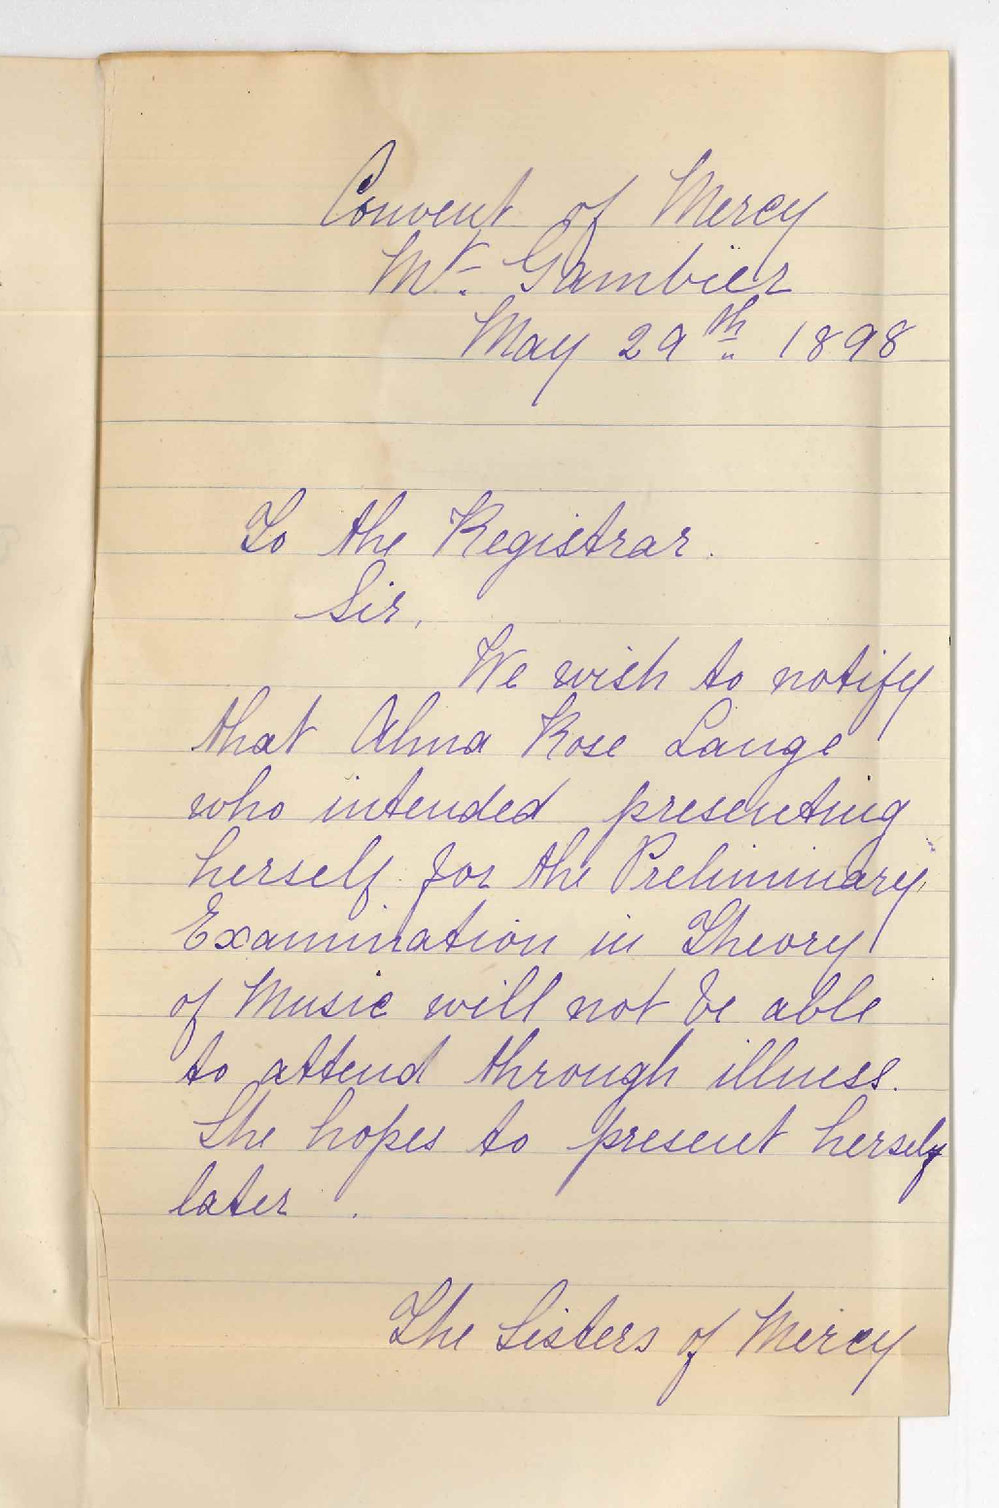 Convent of Mercy
Mt. Gambier
May 29th 1898
To the Registrar.
Sir,
We wish to notify
that Alma Rose Lange
who intended presenting
herself for the Preliminary
Examination in Theory
of Music will not be able
to attend through illness.
She hopes to present herself
later.
The Sisters of Mercy